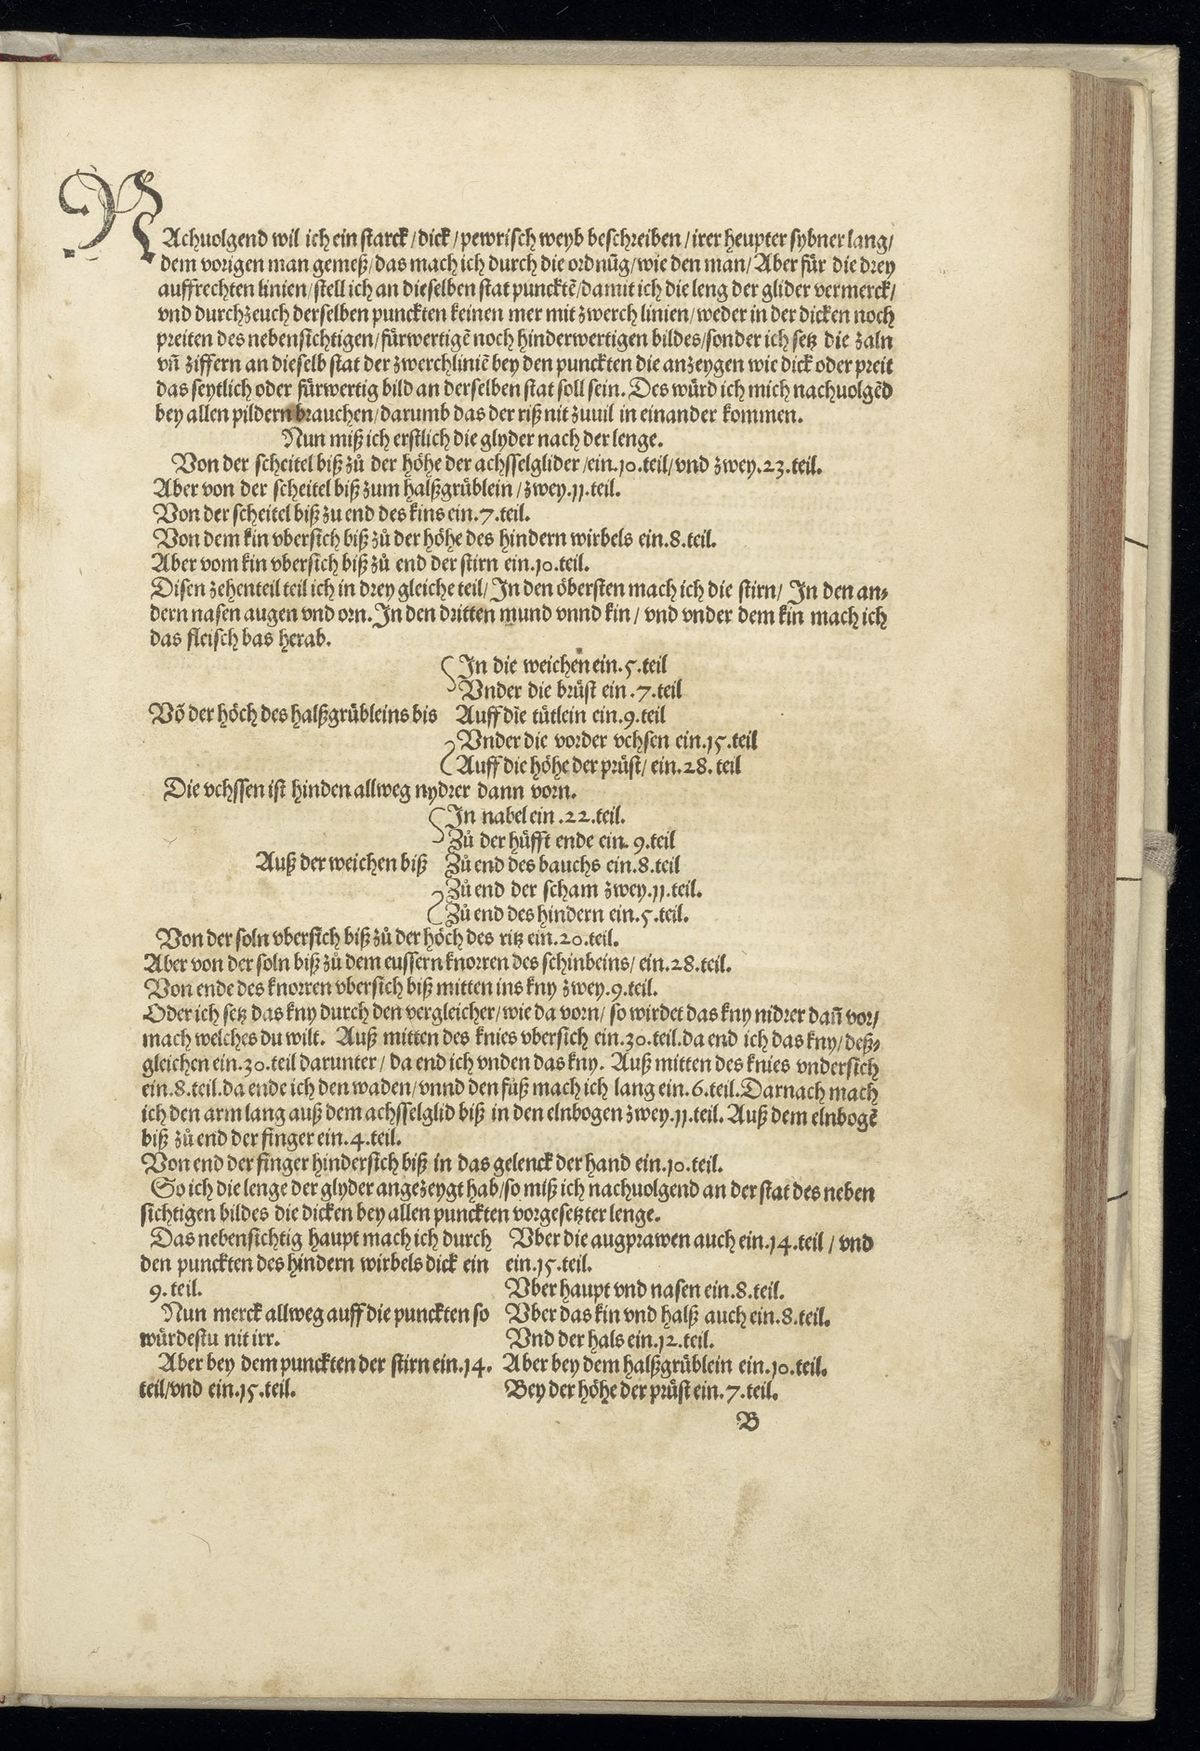 NAchuolgend wil ich ein starck / dick / pewrisch weyb beschreiben / irer heupter sybner lang /
dem vorigen man gemeß / das mach ich durch die ordnũg / wie den man / Aber für die drey
auffrechten linien / stell ich an dieselben stat puncktẽ / damit ich die leng der glider vermerck /
vnd durchzeuch derselben punckten keinen mer mit zwerch linien / weder in der dicken noch
preiten des nebensichtigen / fürwertigẽ noch hinderwertigen bildes / sonder ich setz die zaln
vñ ziffern an dieselb stat der zwerchliniẽ bey den punckten die anzeygen wie dick oder preit
das seytlich oder fürwertig bild an derselben stat soll sein. Des würd ich mich nachuolgẽd
bey allen pildern brauchen / darumb das der riß nit zuuil in einander kommen.
Nun miß ich erstlich die glyder nach der lenge.
Von der scheitel biß zů der höhe der achsselglider / ein.10.teil / vnd zwey.23.teil.
Aber von der scheitel biß zum halßgrüblein / zwey.11.teil.
Von der scheitel biß zu end des kins ein.7.teil.
Von dem kin vbersich biß zů der höhe des hindern wirbels ein.8.teil.
Aber vom kin vbersich biß zů end der stirn ein.10.teil.
Disen zehenteil teil ich in drey gleiche teil / In den öbersten mach ich die stirn / In den an⸗
dern nasen augen vnd orn. In den dritten mund vnnd kin / vnd vnder dem kin mach ich
das fleisch bas herab.
In die weichen ein.5.teil
Vnder die brüst ein.7.teil
Võ der höch des halßgrübleins bis Auff die tütlein ein.9.teil
Vnder die vorder vchsen ein.15.teil
Auff die höhe der prüst / ein.28.teil
Die vchssen ist hinden allweg nydrer dann vorn.
In nabel ein.22.teil.
Zů der hüfft ende ein.9.teil
Auß der weichen biß Zů end des bauchs ein.8.teil
Zů end der scham zwey.11.teil.
Zů end des hindern ein.5.teil.
Von der soln vbersich biß zů der höch des ritz ein.20.teil.
Aber von der soln biß zů dem eussern knorren des schinbeins / ein.28.teil.
Von ende des knorren vbersich biß mitten ins kny zwey.9.teil.
Oder ich setz das kny durch den vergleicher / wie da vorn / so wirdet das kny nidrer dañ vor /
mach welches du wilt. Auß mitten des knies vbersich ein.30.teil.da end ich das kny / deß⸗
gleichen ein.30.teil darunter / da end ich vnden das kny. Auß mitten des knies vndersich
ein.8.teil.da ende ich den waden / vnnd den fůß mach ich lang ein.6.teil. Darnach mach
ich den arm lang auß dem achsselglid biß in den elnbogen zwey.11.teil. Auß dem elnbogẽ
biß zů end der finger ein.4.teil.
Von end der finger hindersich biß in das gelenck der hand ein.10.teil.
So ich die lenge der glyder angezeygt hab / so miß ich nachuolgend an der stat des neben
sichtigen bildes die dicken bey allen punckten vorgesetzter lenge.
Das nebensichtig haupt mach ich durch
den puncten des hindern wirbels dick ein
9.teil.
Nun merck allweg auff die punckten so
würdestu nit irr.
Aber bey dem punckten der stirn ein.14.
teil / vnd ein.15.teil.
Vber die augprawen auch ein.14.teil / vnd
ein.15.teil.
Vber haupt vnd nasen ein.8.teil.
Vber das kin vnd halß auch ein.8.teil.
Vnd der hals ein.12.teil.
Aber bey dem halßgrüblein ein.10.teil.
Bey der höhe der prüst ein.7.teil.
B